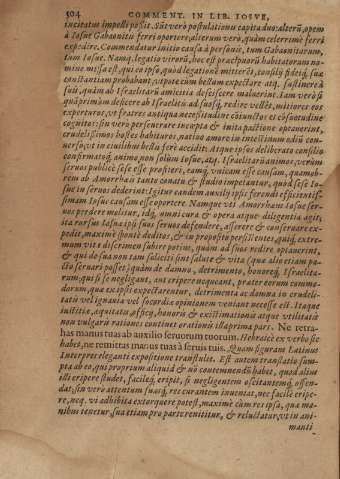 504 COMMENT. IN LIB. IOSVE,
incitatus impelli possit. Sũt verò postulationis capita duo: alterũ, opem
à Iosue Gabaonitis ferri oportere, alterum verò, quàm celerrimè ferri
expedire. Commendatur initio causa à personis, tum Gabaonitarum,
tum Iosue. Namq; legatio virorũ, hoc est præfectorũ habitatorum no-
mine missa est, qui eo ipso, quod legationē mitterēt, consilij fideiq́; suæ
constantiam probabant, vtpote cùm bellum expectare atq; sustinere à
suis, quàm ab Israelitarũ amicitia desciscere maluerint. Iam verò si
quàprimùm desicere ab Israelitis ad suosq́; redire vellēt, mitiores eos
experturos, vt fratres antiqua necessitudine cõiunctos et cõsuetudine
cognitos: sin verò perseuerare in cœpta & inita pactione optauerint,
crudelissimos hostes habituros, natiuo amore in intestinum odiũ con-
uerso, vt in ciuilibus bellis ferè accidit. Atque ipsos deliberato consilio
confirmatoq́; animo non solùm Iosue, atq; Israelitarũ animos, verùm
seruos publicè sese esse profiteri, eamq́; vnicam esse causam, quamob-
rem ab Amorrhæis tanto conatu & studio impetantur, quòd sese Io-
sue in seruos dederint: Igitur eandem auxilij ipsis ferendi efficientis-
simam Iosue causam esse oportere. Namque vti Amorrhæi Iosue ser-
uos perdere molitur, idq́; omni cura & opera atque diligentia agit,
ita rursus Iosue ipsi suos seruos defendere, asserere & conseruare ex-
pedit, maximè sponte deditos, & in proposito persistentes, quiq́; extre-
mum vitæ discrimen subire potius, quàm ad suos redire optauerint,
& qui de sua non tam soliciti sint salute & vita (quæ alio etiam pa-
cto seruari posset) quàm de damno, detrimento, honoreq́; Israelita-
rum: qui si se negligant, aut eripere nequeant, præter eorum commo-
dorum, quæ ex ipsis expectarentur, detrimenta ac damna in crudeli-
tatis vel ignauiæ vel socordiæ opinionem veniant necesse est. Itaque
iustitiæ, æquitatis, officij, honoris & existimationis atque vtilitatis
non vulgaris rationes continet orationis illa prima pars. Ne retra-
has manus tuas ab auxilio seruorum tuorum. Hebraicè ex verbo sic
habes, ne remittas manus tuas à seruis tuis. Quam figuram Latinus
Interpres eleganti expositione transtulit. Est autem translatio sum-
pta ab eo, qui proprium aliquid & nō contemnendũ habet, quod alius
illi eripere studet, facileq́; eripit, si negligentem oscitantemq́; offen-
dat; sin verò attentum suæq́; rei curantem inueniat, nec facilè eripe-
re, neq; vi adhibita extorquere potest, maximè cùm res ipsa, quæ ma-
nibus tenetur, sua etiam pro parte renititur, & reluctatur, vt in ani-
manti